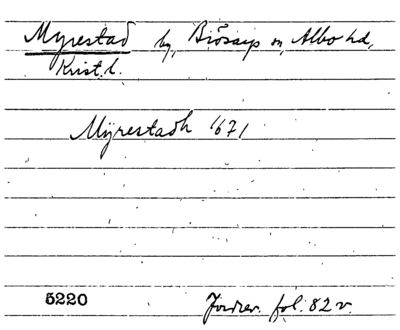 Myrestad by, Brösarps sn, Albo hd,
Krist. l.
Mÿrestadh 1671
5220 Jordrev. fol. 82 v.